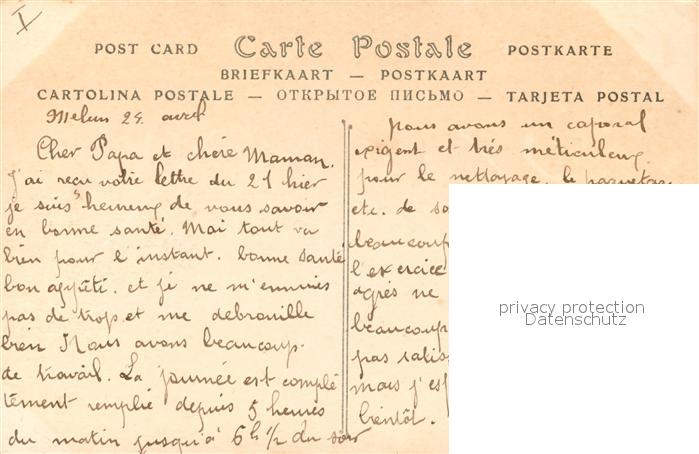 I
POST CARD Carte Postale POSTKARTE
BRIEFKAART — POSTKAART
CARTOLINA POSTALE — ОТКРЫТОЕ ПИСЬМО — TARJETA POSTAL
Melun 24 avril
Cher Papa et chère Maman.
J'ai reçu votre lettre du 21 hier
je suis heureux de vous savoir
en bonne santé. Moi tout va
bien pour l'instant. bonne santé
bon appétit. et je ne m'ennuies
pas de trop et me debrouille
bien Nous avons beaucoup
de travail. La journée est complé
tement remplie depuis 5 heures
du matin jusqu'à 6h 1/2 du soir
nous avons un caporal
exigent et très méticuleux.
pour le nettoyage, le paquetage
etc. de
beaucoup
l'exercice
agrès ne
beaucoup
pas
mais j'
bientôt.
privacy protection
Datenschutz